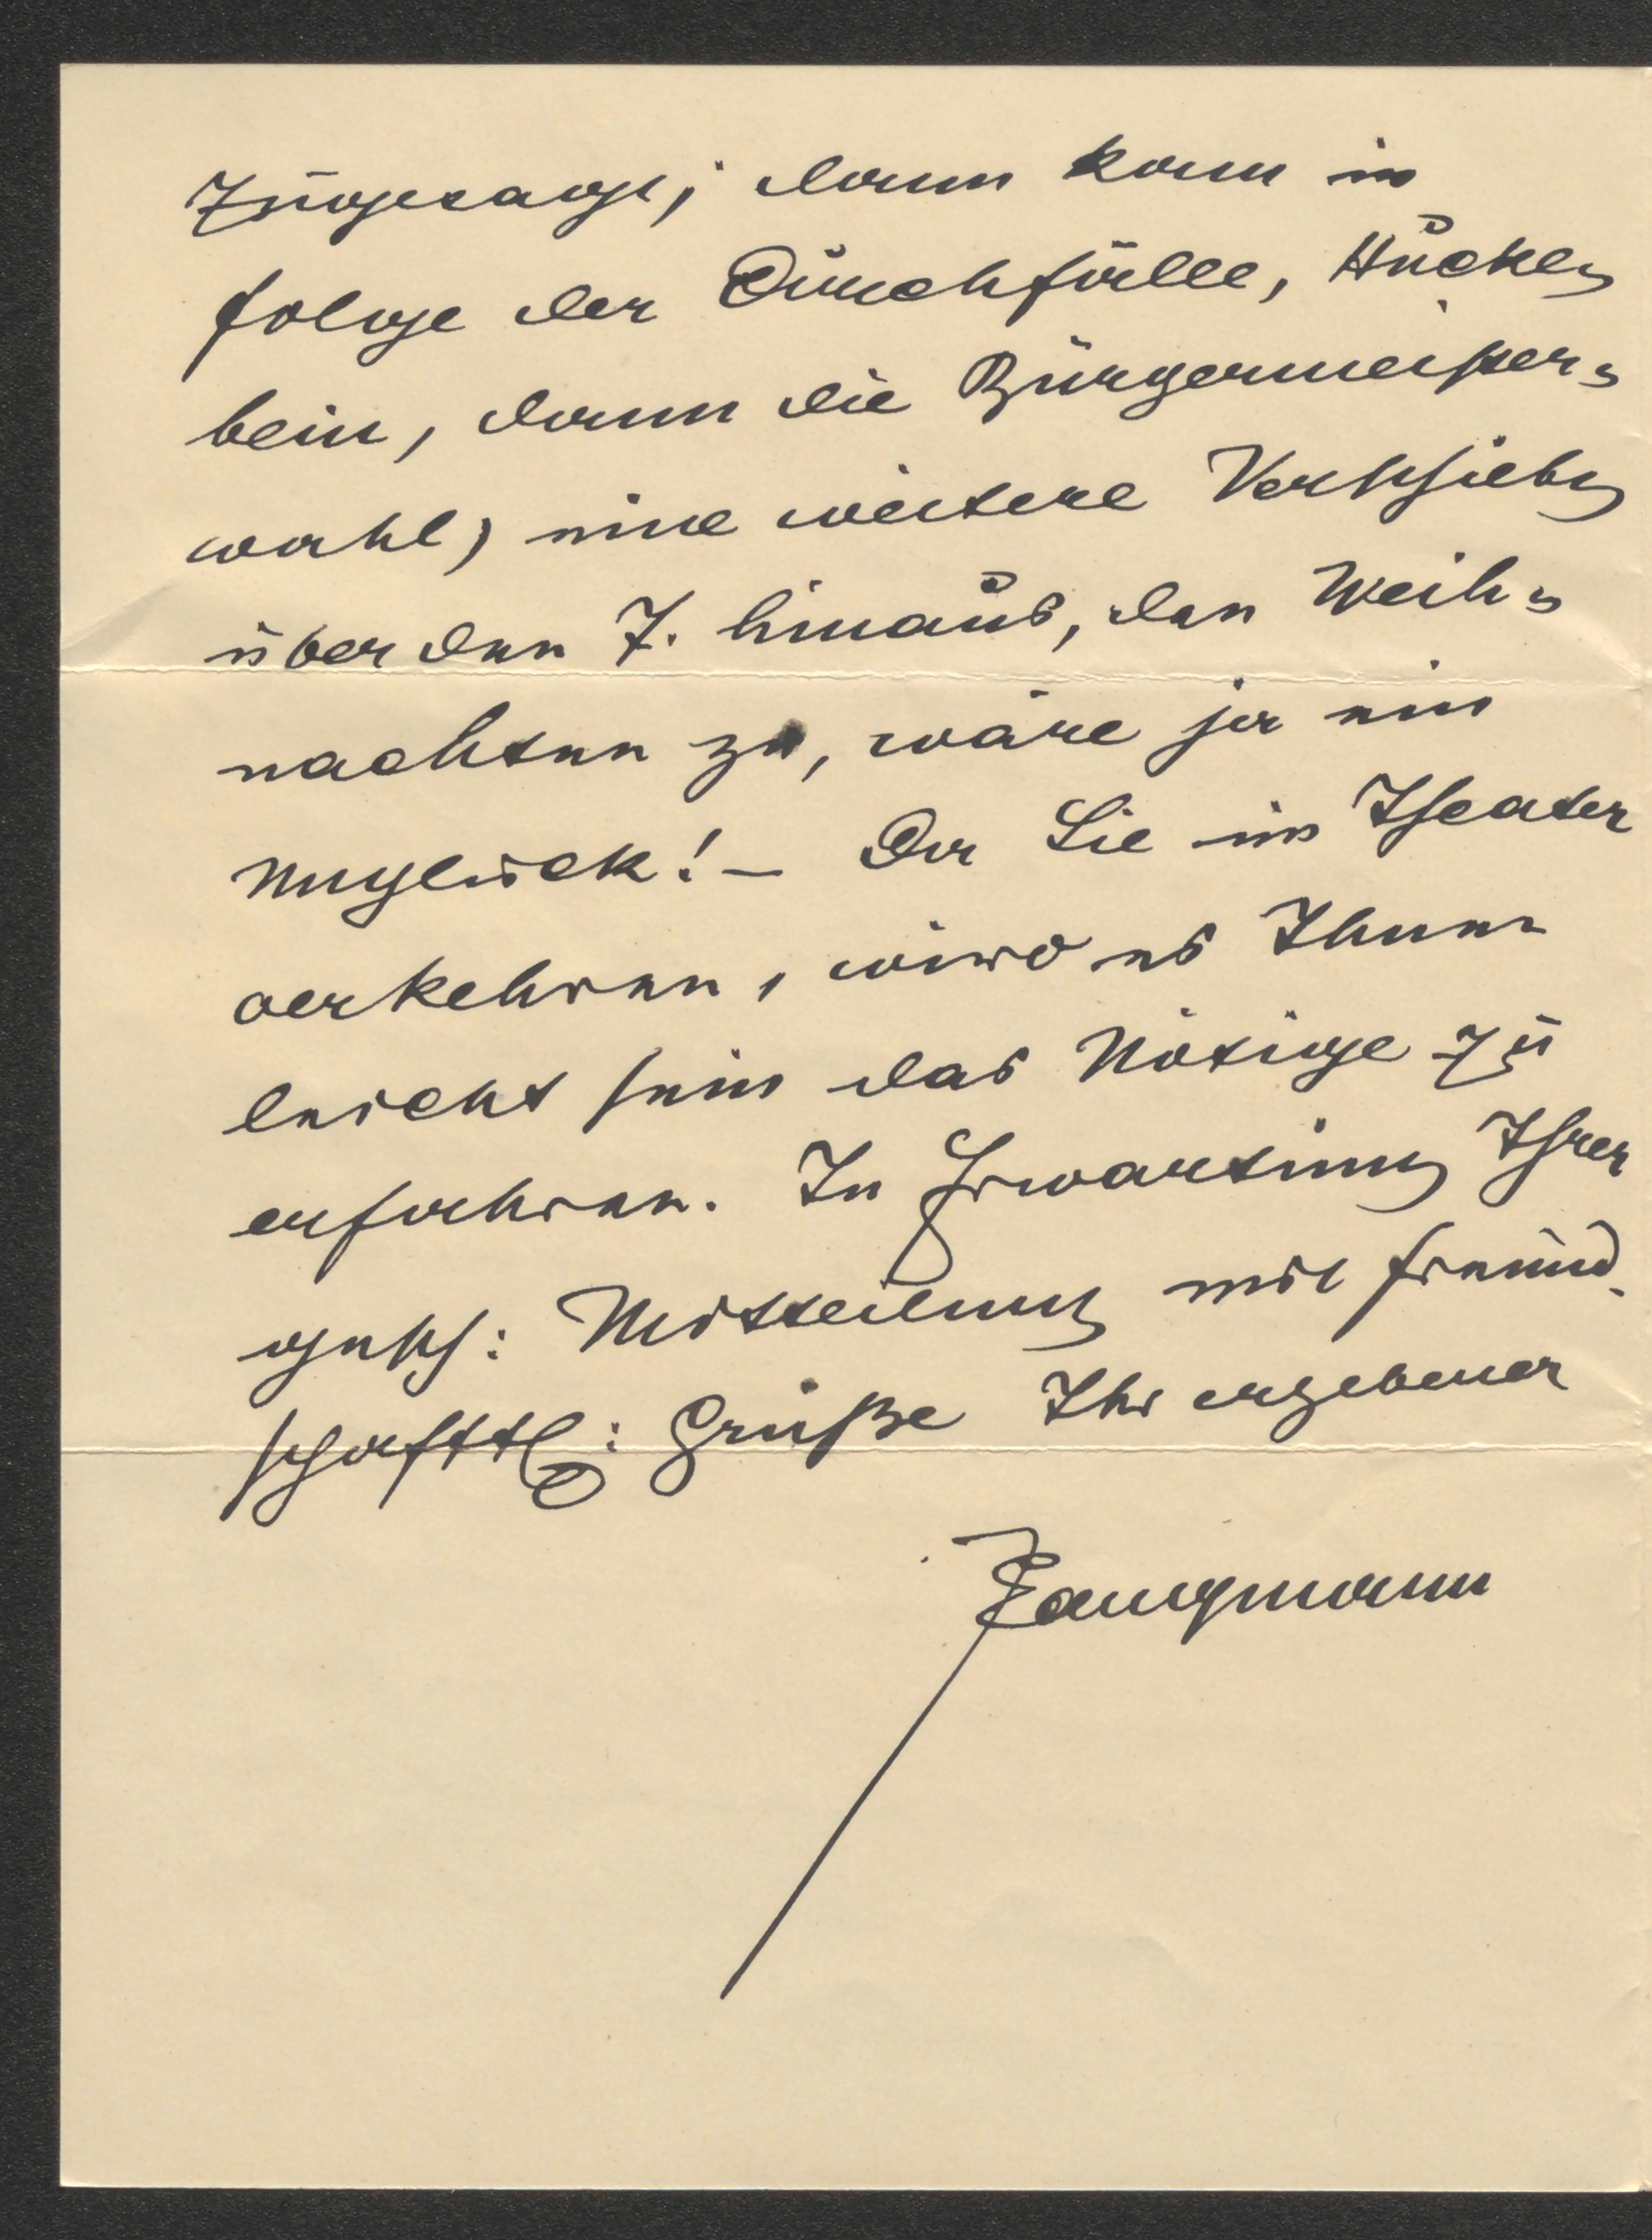 zugesagt; dann kam in
folge der Durchfälle, Hücke-
bein, dann die Bürgermeister-
wahl) eine weitere Verschiebg
über den 7. hinaus, den Weih-
nachten zu, wäre ja ein
Unglück! – Da Sie im Theater
verkehren, wird es Ihnen
leicht sein das Nötige zu
erfahren. In Erwartung Ihrer
gesch: Mitteilung mit freund-
schaftl: Grüße Ihr ergebener
Zangmann